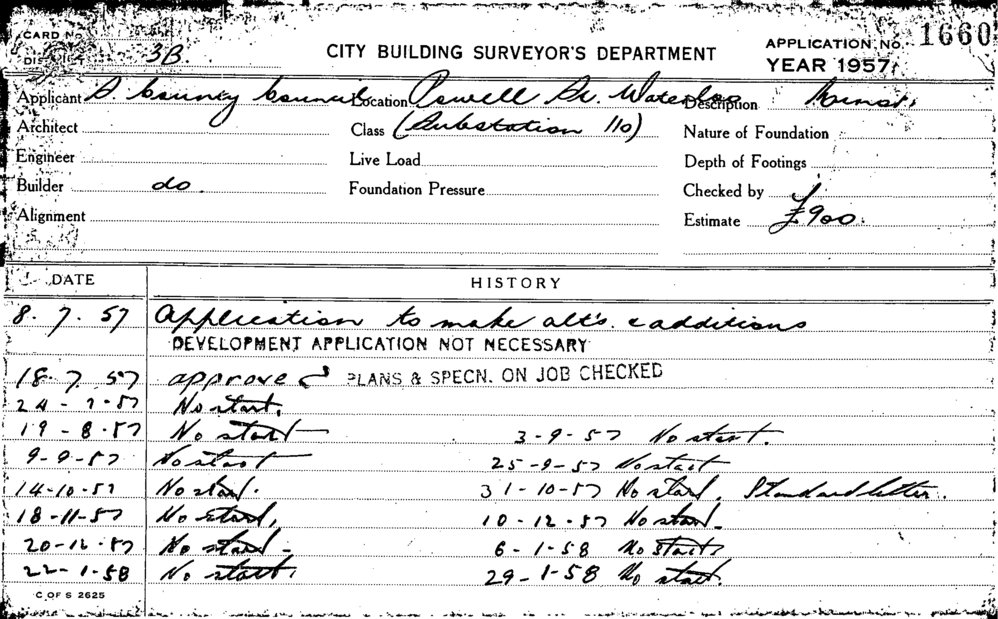 CARD No
DISTRICT 3B.
CITY BUILDING SURVEYOR'S DEPARTMENT
APPLICATION No. 1660
YEAR 1957
Applicant S. County Council Location Powell St. Waterloo Description
Architect Class (Substation 110) Nature of Foundation
Engineer Live Load Depth of Footings
Builder do. Foundation Pressure Checked by
Alignment Estimate £900
DATE HISTORY
8. 7. 57 Application to make alt's. & additions
DEVELOPMENT APPLICATION NOT NECESSARY
18. 7. 57 approved PLANS & SPECN. ON JOB CHECKED
24 - 7 - 57 No start.
19 - 8 - 57 No start 3 - 9 - 57 No start.
9 - 9 - 57 No start 25 - 9 - 57 No start
14-10-57 No start. 31 - 10 - 57 No start. Standard letter.
18-11-57 No start. 10 - 12 - 57 No start.
20-12-57 No start - 6 - 1 - 58 No start
22 - 1-58 No start. 29 - 1 - 58 No start.
C OF S 2625